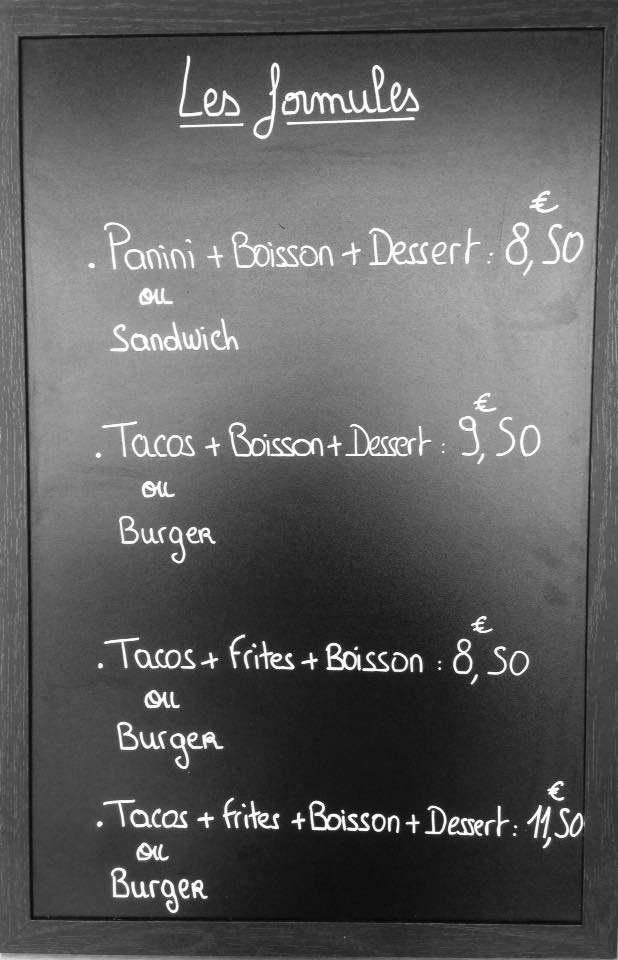 Les formules
. Panini + Boisson + Dessert : 8,50 €
ou
Sandwich
. Tacos + Boisson + Dessert : 9,50 €
ou
Burger
. Tacos + frites + Boisson : 8,50 €
ou
Burger
. Tacos + frites + Boisson + Dessert : 11,50 €
ou
Burger